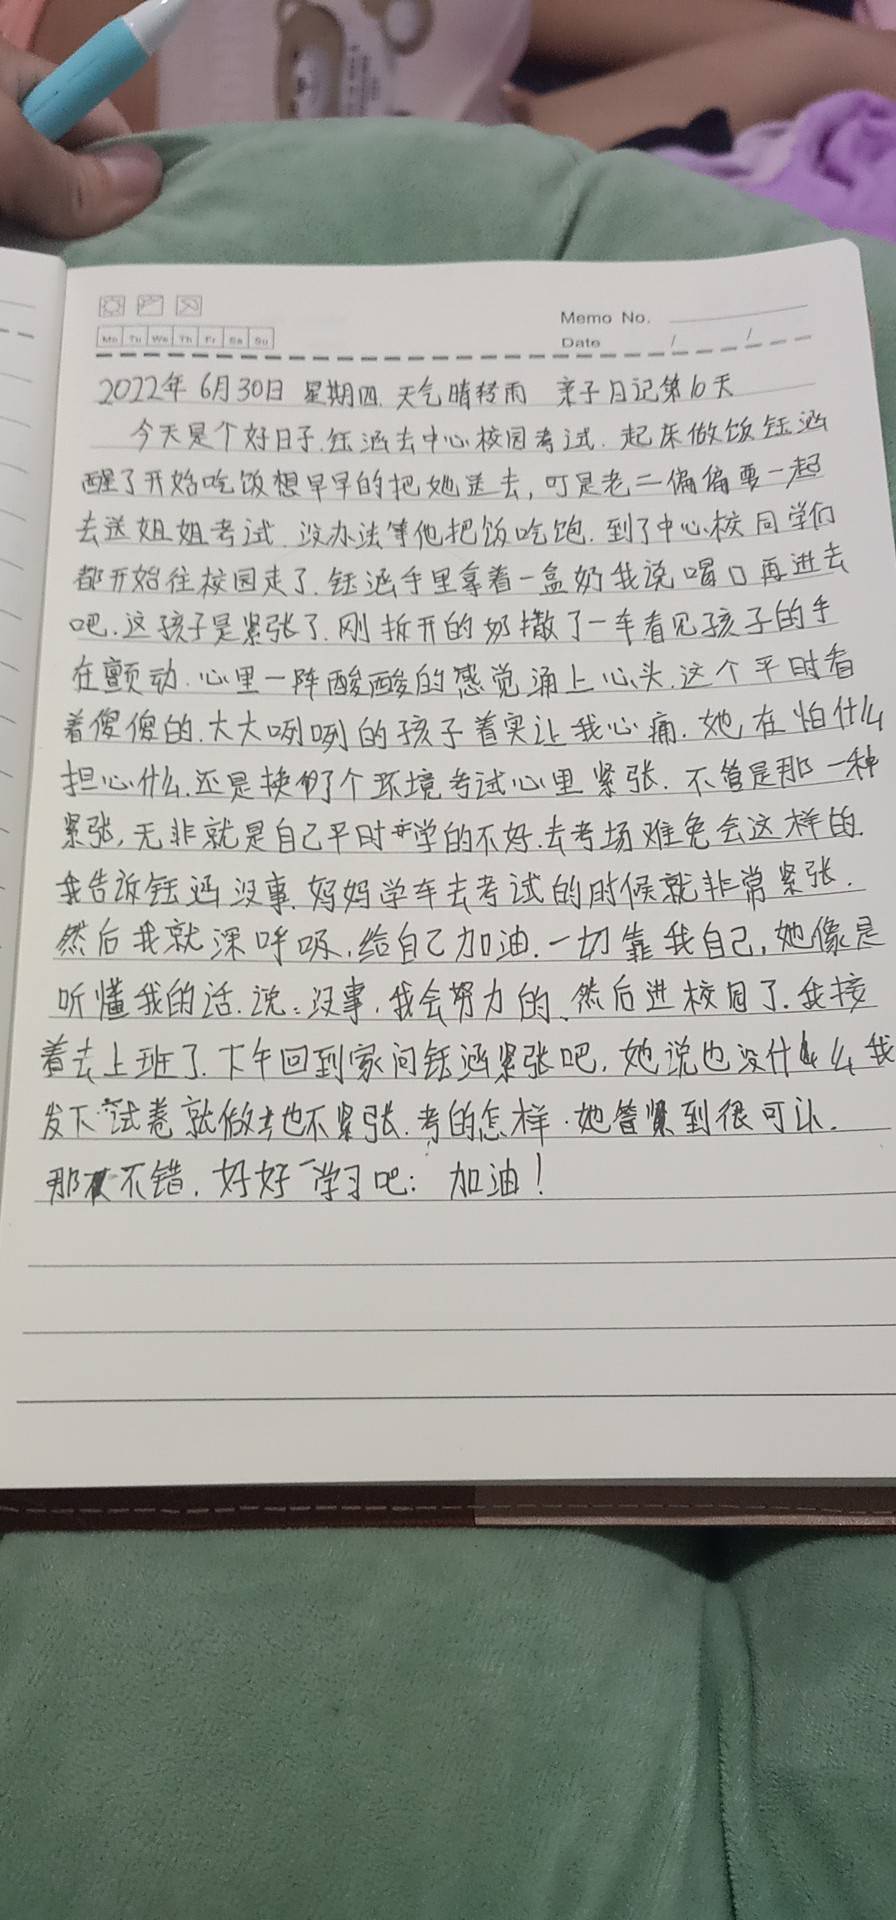 Memo No.
Mo Tu We Th Fr Sa Su
Date / /
2022年 6月30日 星期四. 天气晴转雨 亲子日记第10天
今天是个好日子.钰涵去中心校园考试. 起床做饭钰涵
醒了开始吃饭想早早的把她送去,可是老二偏偏要一起
去送姐姐考试.没办法等他把饭吃饱.到了中心校同学们
都开始往校园走了.钰涵手里拿着一盒奶我说喝口再进去
吧.这孩子是紧张了.刚拆开的奶撒了一车看见孩子的手
在颤动.心里一阵酸酸的感觉涌上心头.这个平时看
着傻傻的.大大咧咧的孩子着实让我心痛.她在怕什么
担心什么.还是换了个环境考试心里紧张.不管是那一种
紧张,无非就是自己平时学的不好.去考场难免会这样的.
我告诉钰涵没事.妈妈学车去考试的时候就非常紧张.
然后我就深呼吸,给自己加油.一切靠我自己,她像是
听懂我的话.说:没事.我会努力的.然后进校园了.我接
着去上班了.下午回到家问钰涵紧张吧,她说也没什么我
发下试卷就做也不紧张.考的怎样.她答到很可以.
那不错.好好学习吧:加油!